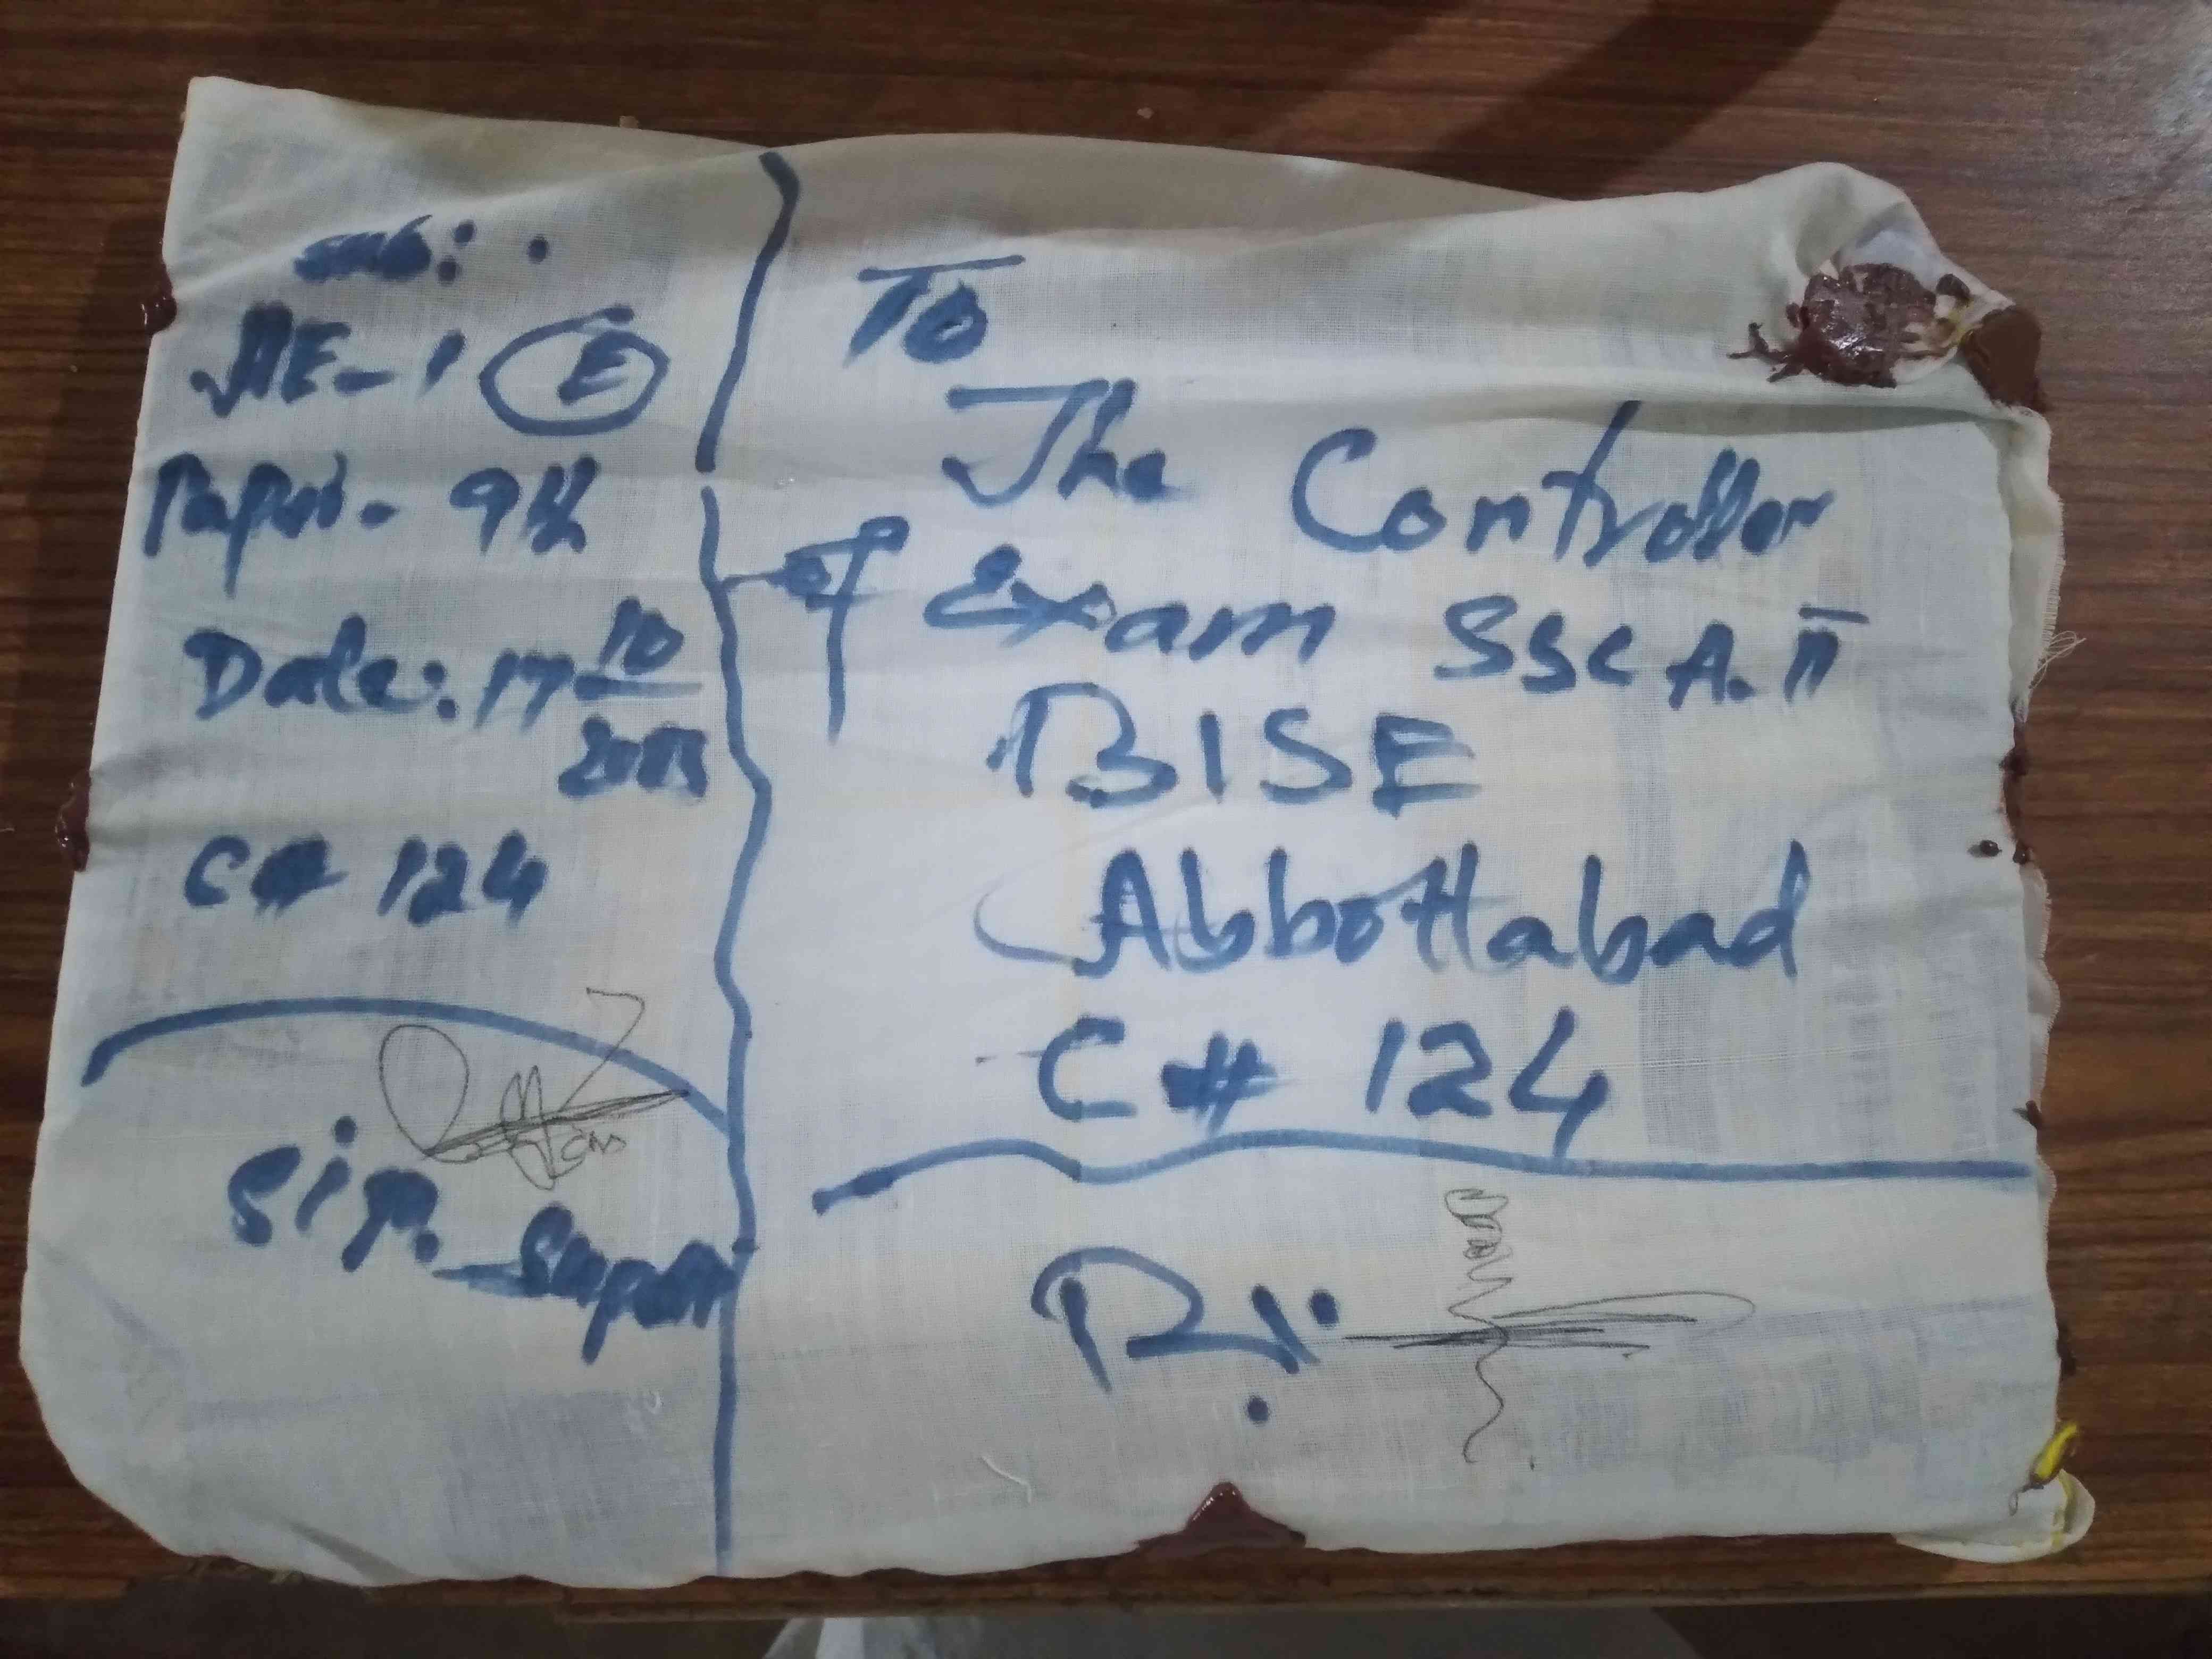 Sub:
HE-1 E
Paper- 9th
Date: 17 10
2023
C# 124
Sig. Supdt
To
The Controller
of Exam SSC A. II
BISE
Abbottabad
C# 124